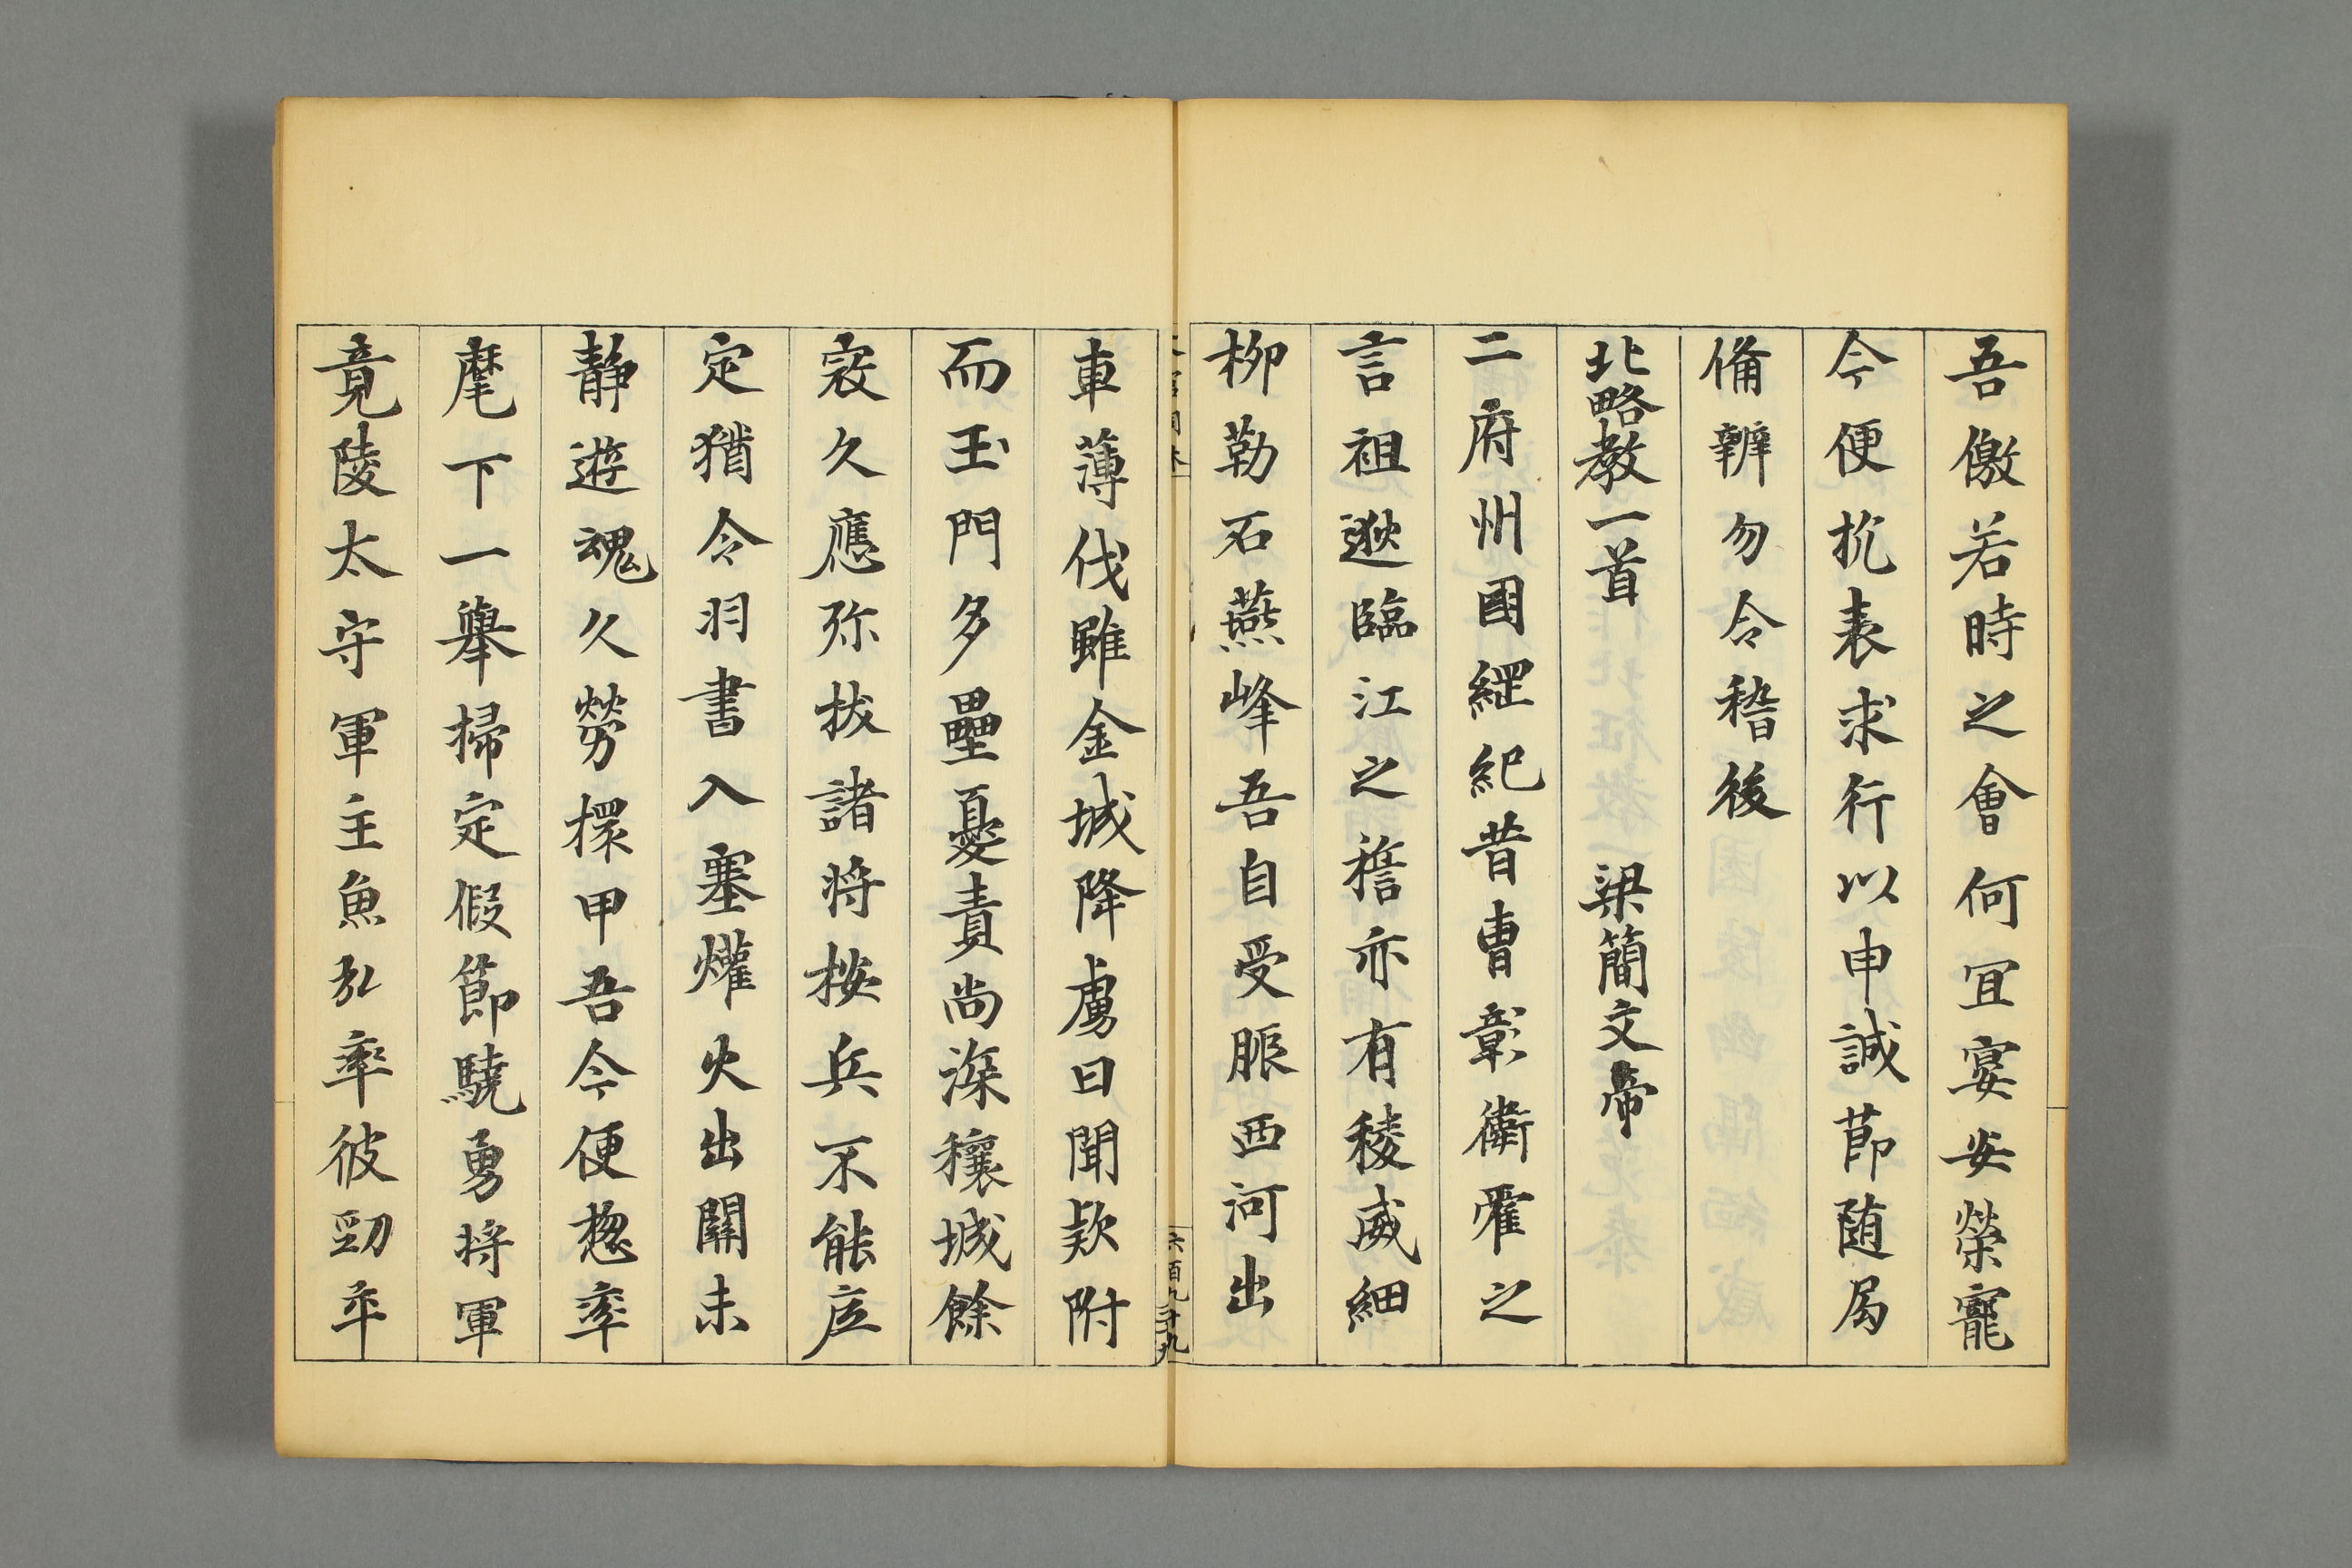 吾儌若時之會何冝宴安榮寵
今便抗表求行以申誠莭随局
俻辨勿令稽後
北略教一首 梁簡文帝
二府州國經紀昔曹彰衛霍之
言祖逖臨江之擔亦有稜威細
柳勒石燕峰吾自受脤西河出
車薄伐雖金城降虜日聞欵附
而玉門多壘憂責尚深穰城餘
寇久應弥拔諸将按兵不能庀
定猶令羽書入塞爟火出關未
静遊魂久勞擐甲吾今便惣率
麾下一舉掃定假節驍勇将軍
竟陵太守軍主魚弘率彼勁卒
六百九十九